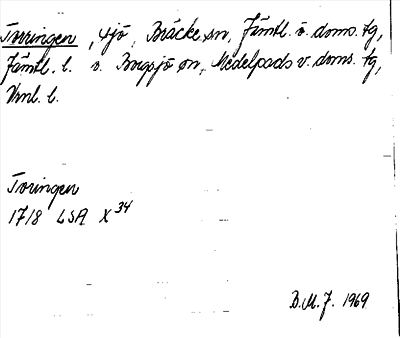 Torringen, sjö, Bräcke sn, Jämtl. ö. doms. tg,
Jämtl. l. o. Borgsjö sn, Medelpads v. doms. tg,
Vrnl. l.
Toringen
1718 LSA X 34
B.M.J. 1969